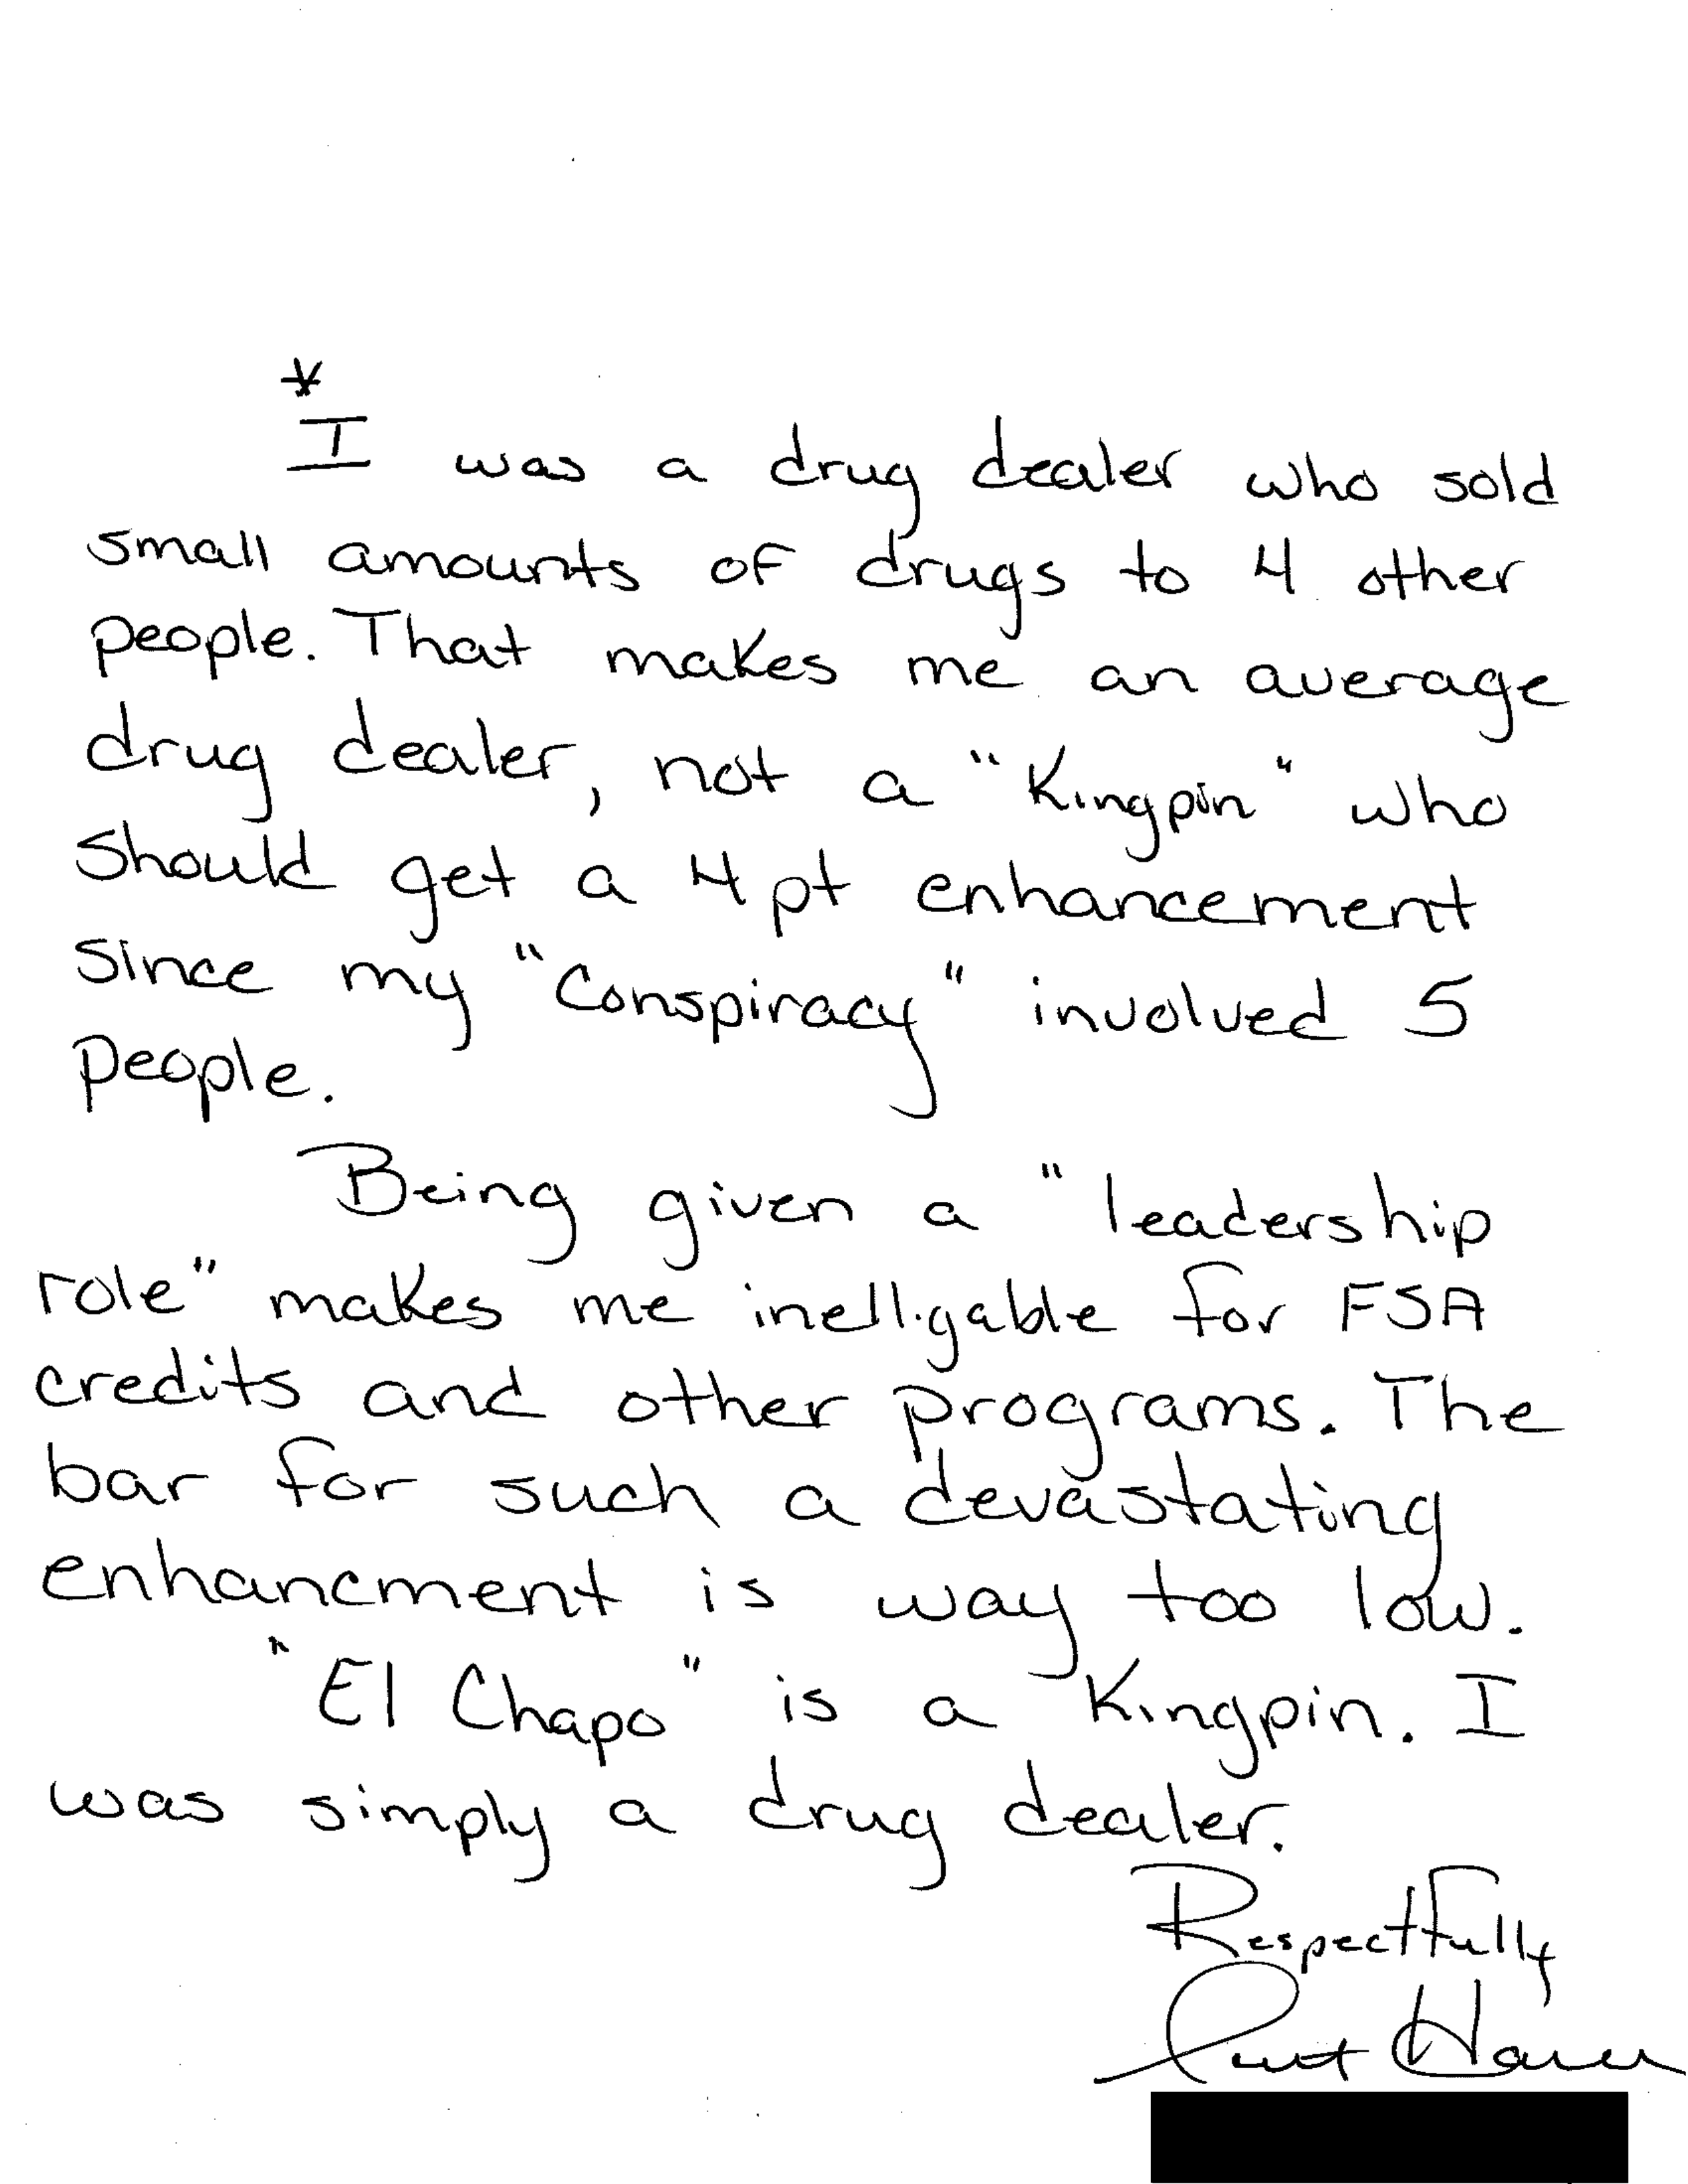 *
I was a drug dealer who sold
small amounts of drugs to 4 other
people. That makes me an average
drug dealer, not a "Kingpin" who
should get a 4 pt enhancement
since my "Conspiracy" involved 5
people.
Being given a "leadership
role" makes me inelligable for FSA
credits and other programs. The
bar for such a devastating
enhancment is way too low.
"El Chapo" is a Kingpin. I
was simply a drug dealer.
Respectfully